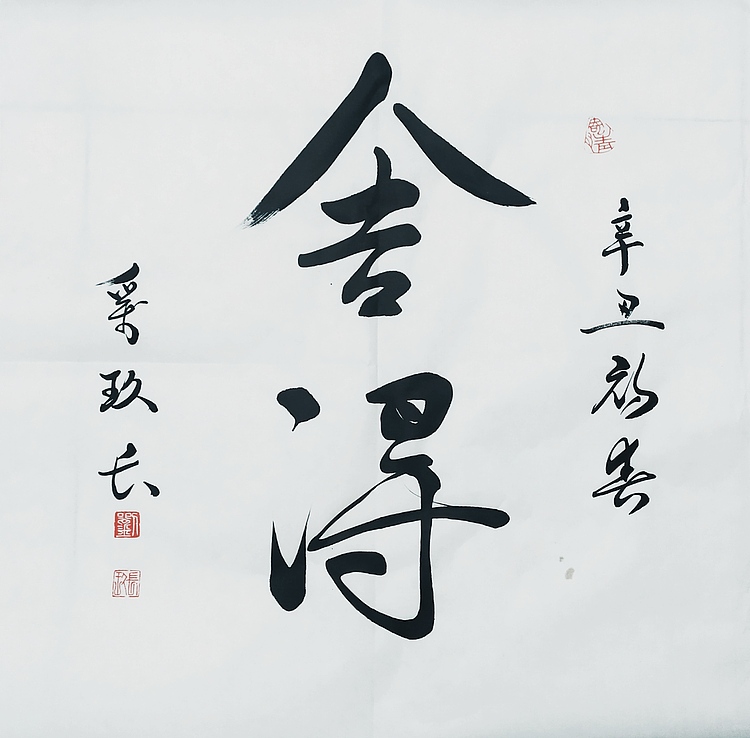 辛丑初春
舍得
劉玖长